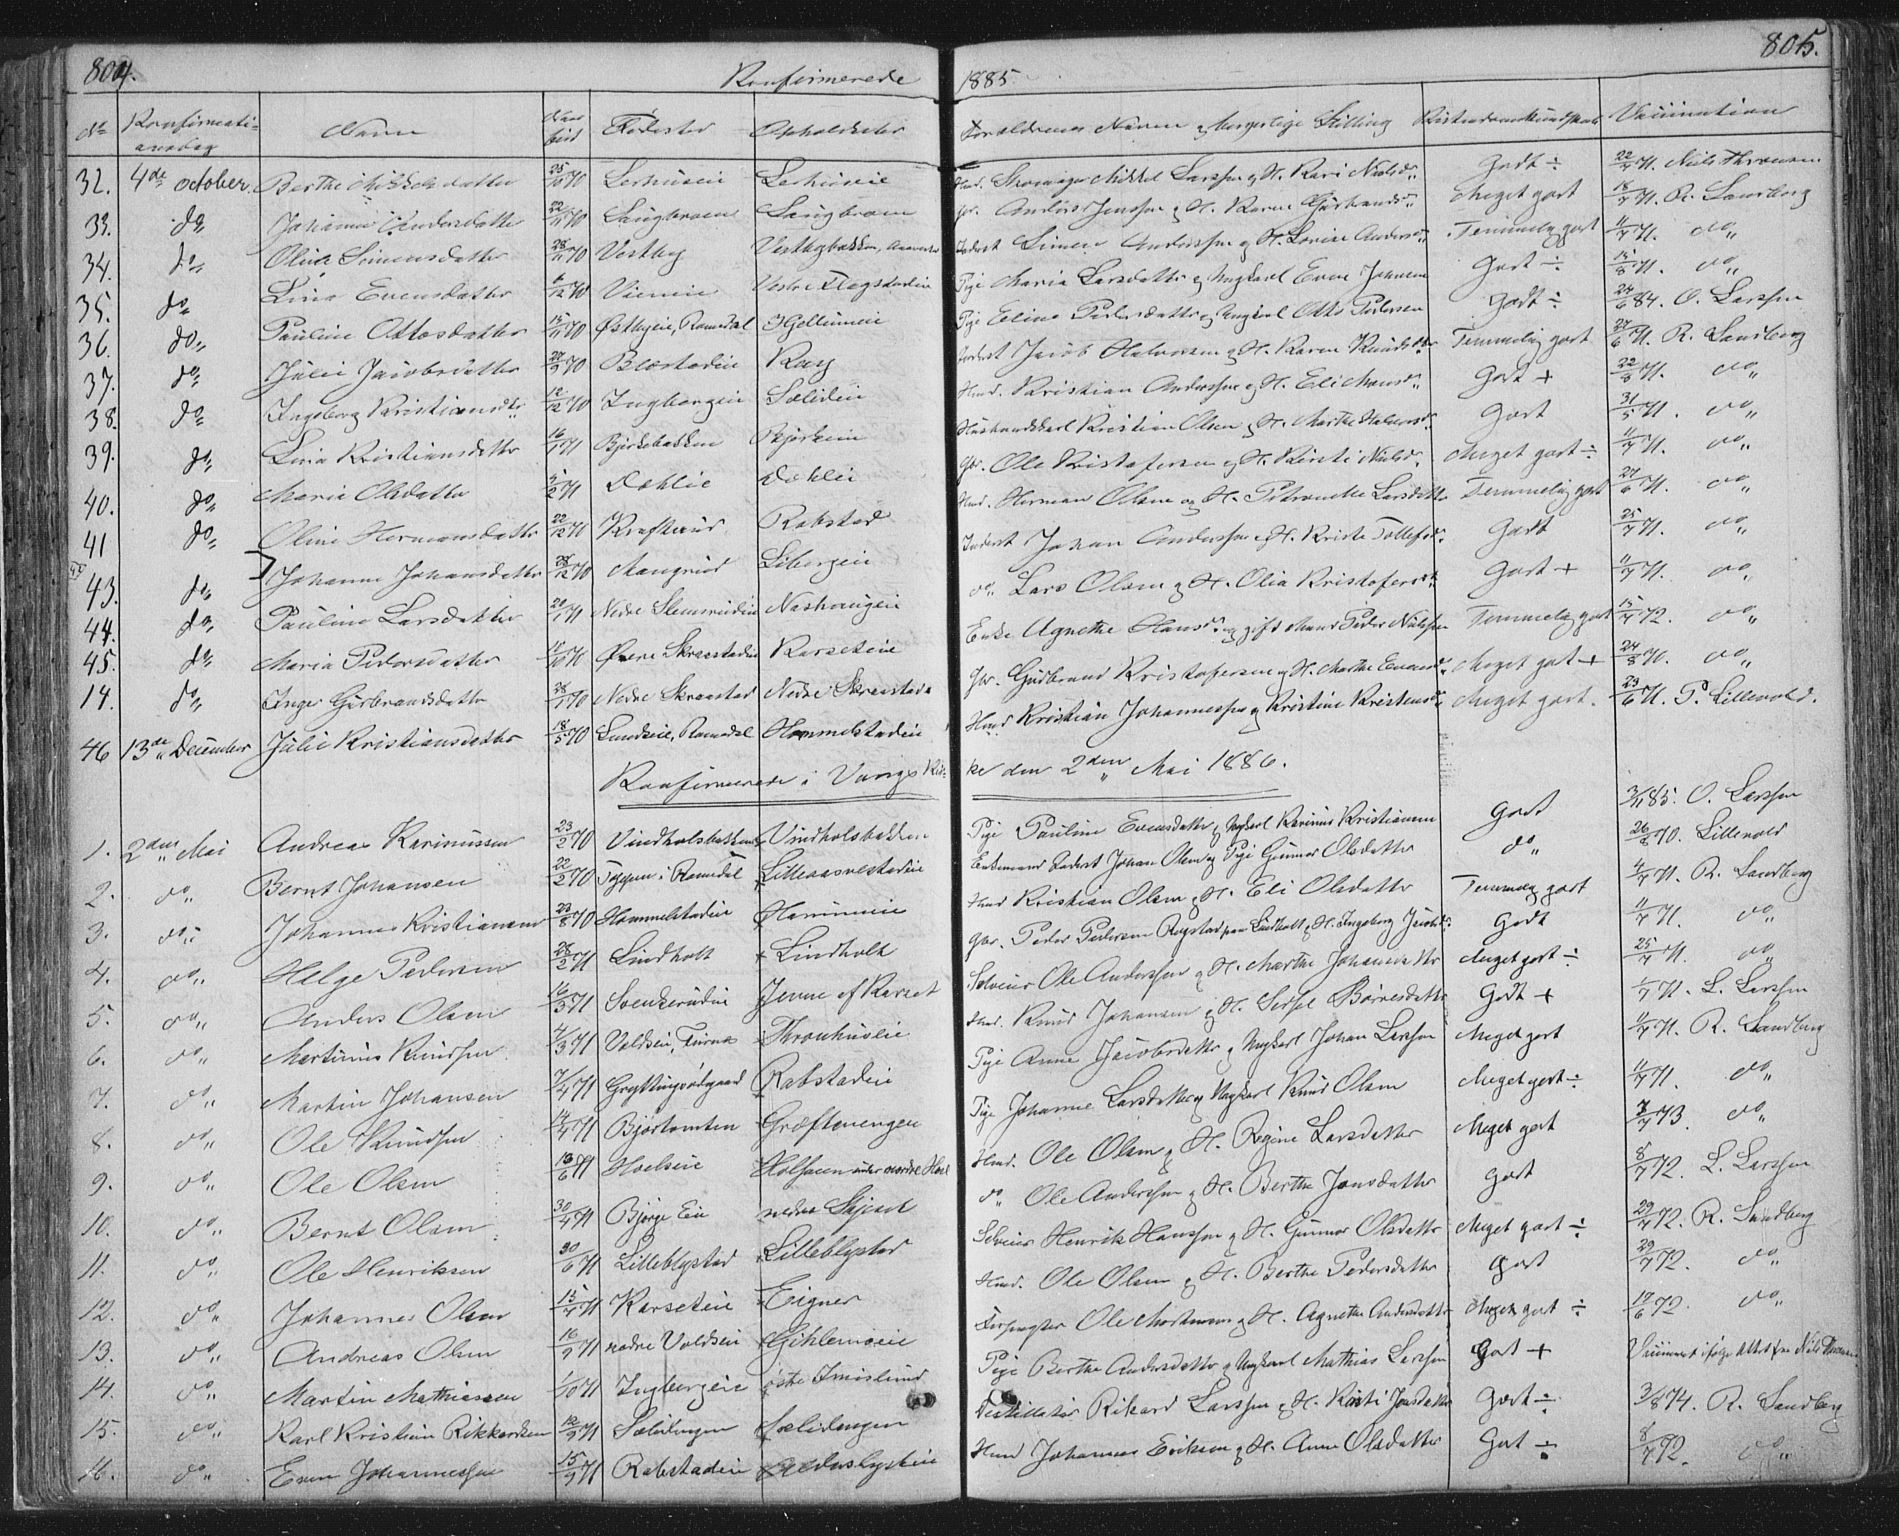 804. Konfirmerede 1885 805.
No Konfirmationsdag Navn Fødested Opholdssted Forældrenes Navne og borgerlige Stilling Kristendomskundskab Vaccination
32. 4de October. Berthe Mikkelsdatter 70 Lerhuseie Lerhuseie Hmd. Mikkel Larssen og H. Kari Nielsd. Godt ÷ 22/7 71. Niels Thronsen
33. do Johanne Andersdatter 22/11 70 Langbraaen Langbraaen Gbr. Anders Jenssen og H. Karen Gudbrandsd. Meget godt 18/7 71. R. Sandberg
34. do Oline Simensdatter 28/11 70 Vestby Vestbybakken, Inderst Simen Anderssen og H. Lovise Andersd. Temmelig godt 11/7 71. do
35. do Lina Evensdatter 6/12 70 Vieneie Vestre Flagstadeie Pige Maria Larsdatter og Ungkarl Even Johansen Godt ÷ 15/8 71. do
36. do Pauline Ottosdatter 15/11 70 Østbyeie, Romedal Hjellumeie Pige Eline Pedersdatter og Ungkarl Otto Pedersen Godt ÷ 24/6 84. O. Larssen
37. do Julie Jacobsdatter 70 Blæstadeie Inderst Jacob Halvorsen og H. Karen Knudsd. Temmelig godt 27/6 71. R. Sandberg
38. do Ingeborg Kristiansd. 12/12 70 Ingbergeie Sælideie Hmd. Kristian Anderssen og H. Eli Hansd. Godt + 22/8 71. do
39. do Lina Kristiansdatter 16/1 71 Bjerkebakken Bjerkeeie Husmandskarl Kristian Olsen og H. Marthe Halvorsd. Godt 31/5 71. do
40. do Marie Olsdatter 5/2 71 Dæhlie Dæhlie Gbr. Ole Kristofersen og H. Kirsti Nielsd. Meget godt ÷ 11/7 71. do
41 do Oline Hermansdatter 22/12 70 Krafterud Rabstad Hmd. Herman Olsen og H. Petronelle Larsdatter Temmelig godt 27/6 71. do
43. do Johanne Johansdatter 28/12 70 Mangrud Libergeie Inderst Johan Anderssen og H. Kirste Tollefsd. Godt 25/7 71. do
44. do Pauline Larsdatter 20/1 71 Nedre Stensrudeie Nashaugeie do Lars Olsen og H. Olia Kristofersd. Godt + 11/7 71. do
45. do Maria Pedersdatter Øvre Skraastadeie Karseteie Enke Agnethe Hansd. og gift Mand Peder Nielssen Temmelig godt 15/7 72. do
14. do Inger Gudbrandsdatter 28/1 70 Nedre Skraastad Nedre Skraastad Gbr. Gudbrand Kristofersen og H. Marthe Evensd. Meget godt + 24/8 70. do
46 13de December Julie Kristiansdatter 18/5 70 Lundeie, Romedal Hommelstadeie Hmd. Kristian Johannessen og Kristine Kristensd. Meget godt. 23/6 71. P. Lillevold.
Konfirmerede i Vangs Kirke den 2den Mai 1886.
1. 2den Mai Andreas Karinussen 23/2 70 Vindholsbakken Vindholsbakken Pige Pauline Evensdatter og Ungkarl Karinus Kristiansen Godt 3/11 85. O. Larssen
2. do Bernt Johansen 22/2 70 Toppen i Romedal Lilleaasnestadeie Enkemand Inderst Johan Olsen og Pige Gunnor Olsdatter do 26/8 70. Lillevold
3. do Johannes Kristiansen 23/8 70 Hommelstadeie Hmd Kristian Olsen og H. Eli Olsdatter Temmelig godt 4/7 71. R. Sandberg
4. do Helge Pedersen 28/2 71 Lindholt Lindholt Gbr. Peder Pedersen Rogstad paa Lindholt og H. Ingeborg Jacobsd. Godt 11/7 71. do
5. do Anders Olsen 16/3 71 Svenkerudeie Jenne af Karset Selveier Ole Anderssen og H. Marthe Johannesdatter Meget godt ÷ 25/7 71. do
6. do Martinus Knudsen 4/3 71 Voldseie, Furnæs Thronhuseie Hmd. Knud Johansen og H. Serpe Børresdatter Godt + 1/7 71. L. Larssen
7. do Martin Johansen 7/4 71 Grøttingsødegaard Rabstadeie Pige Anne Jacobsdatter og Ungkarl Johan Larssen Meget godt 11/7 71. R. Sandberg
8. do Ole Knudsen 14/4 71 Bjørtomten Græftevengen Pige Johanne Larsdatter og Ungkarl Knud Olsen Meget godt ÷ 11/7 71. do
9. do Ole Olsen 16/6 71 Hoelseie Holsveen under nordre Hoel Hmd. Ole Olsen og H. Regine Larsdatter Meget godt 7/7 73. do
10. do Bernt Olsen 30/4 71 Bjørge Eie nedre Skjeset do Ole Anderssen og H. Berthe Jonsdatter Godt 8/7 72. L. Larssen
11. do Ole Henriksen 30/6 71 Lilleblystad Lilleblystad Selveier Henrik Hanssen og H. Gunnor Olsdatter Meget godt ÷ 29/7 72. R. Sandberg
12. do Johannes Olsen 15/7 71 Karseteie Eigner Hmd. Ole Olsen og H. Berthe Pedersdatter Godt 29/7 72. do
13. do Andreas Olsen 16/9 71 nedre Voldseie Gihlemoeie Forpagter Ole Mortensen og H. Agnethe Andersdatter Meget godt ÷ 17/6 72. do
14. do Martin Mathiassen 1/10 71 Ingbergeie østre Imislund Pige Berthe Andersdatter og Ungkarl Mathias Larssen Godt + Vaccineret ifølge Attest fra Niels Thronsen
15. do Karl Kristian Rikkardsen 12/9 71 Sælidengen Sælidengen Destillatør Rikard Larssen og H. Kirsti Jonsdatter Godt ÷ 3/8 74. R. Sandberg
16. do Even Johannessen 15/9 71 Rabstadeie Hmd Johannes Eriksen og H. Anne Olsdatter Godt ÷ 8/7 72. do